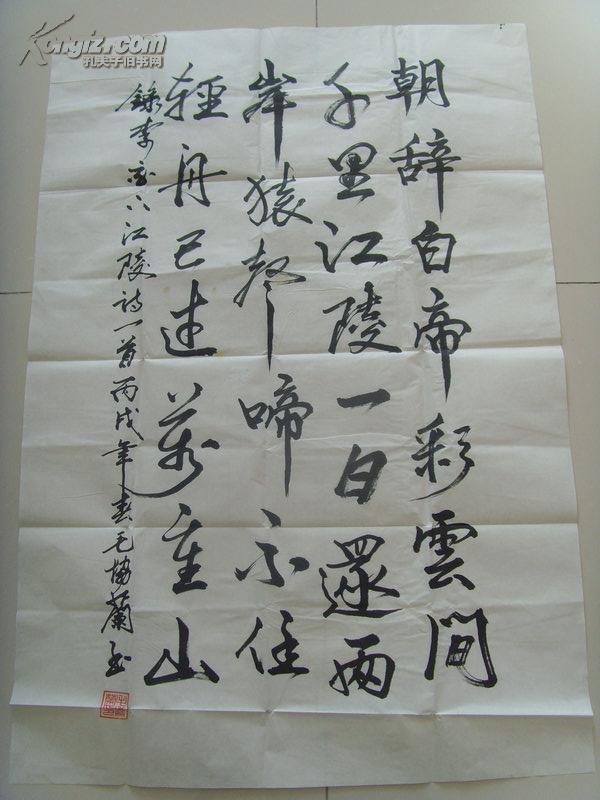 朝辞白帝彩雲間
千里江陵一日還兩
岸猿聲啼不住
輕舟已過萬重山
錄李白下江陵诗一首丙戌年春毛協蘭书
Kongfz.com
孔夫子旧书网